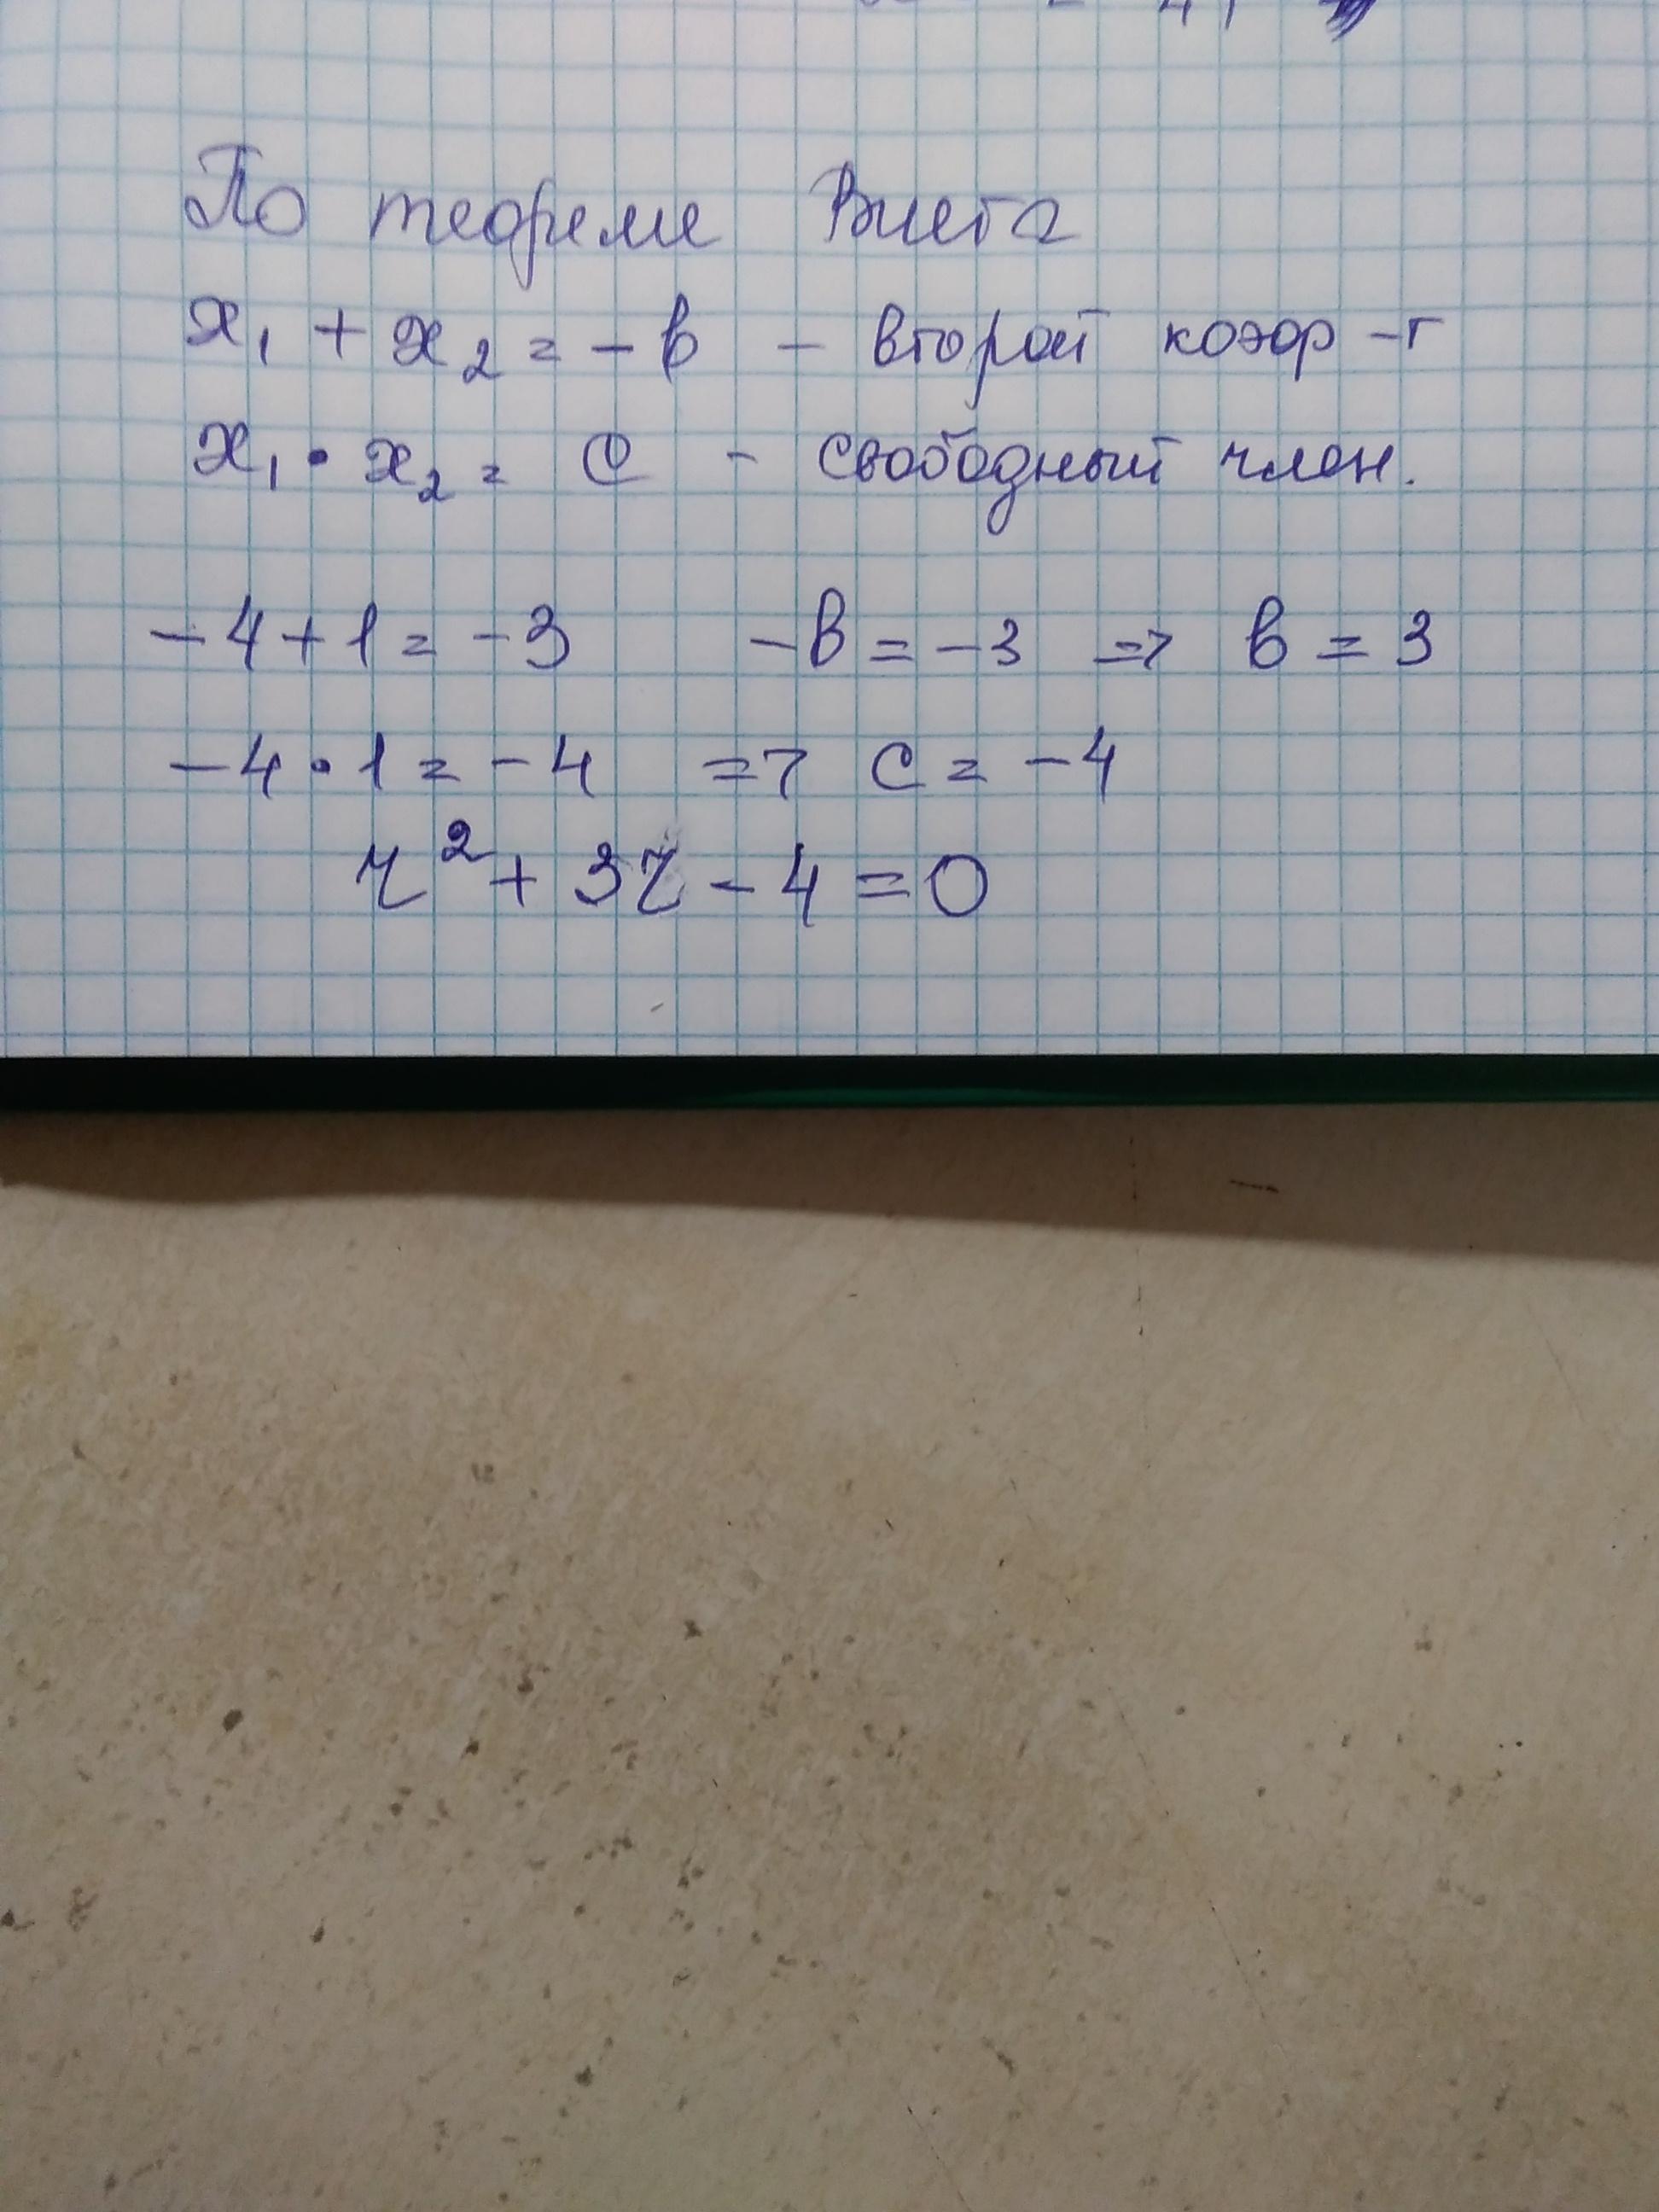 По теореме Виета
x₁ + x₂ = -в - второй коэф-т
x₁ • x₂ = с - свободный член.
-4+1=-3 -в=-3 => в=3
-4•1=-4 => с=-4
r² + 3r - 4 = 0